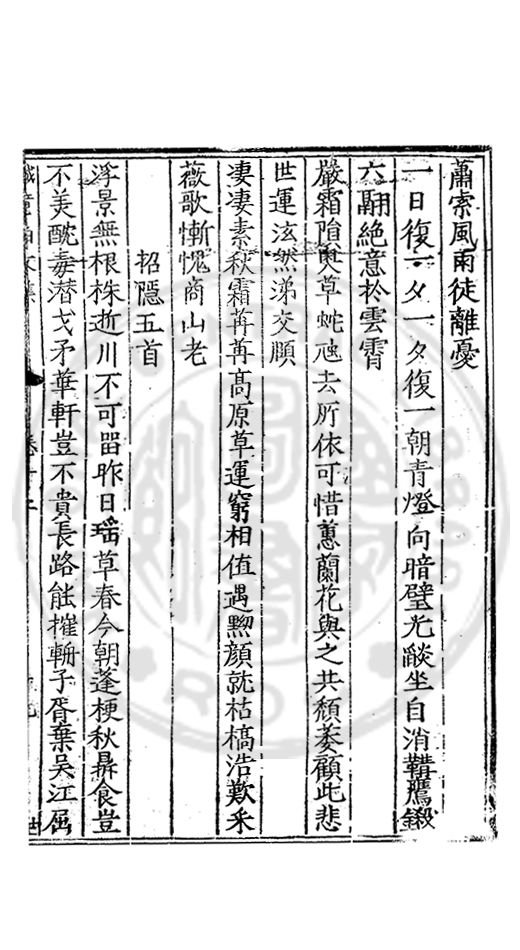 蕭索風雨徒離憂
一日復一夕一夕復一朝青燈向暗壁光燄坐自消鞲鷹鎩
六翮絕意於雲霄
嚴霜隕奧草蛇虺去所依可惜蕙蘭花與之共頹萎顧此悲
世運泫然涕交頤
淒淒素秋霜苒苒高原草運窮相值遇黧顏就枯槁浩歎采
薇歌慚愧商山老
招隱五首
浮景無根株逝川不可畱昨日瑤草春今朝蓬梗秋鼎食豈
不美酖毒潛戈矛華軒豈不貴長路能摧輈子胥棄吳江屈